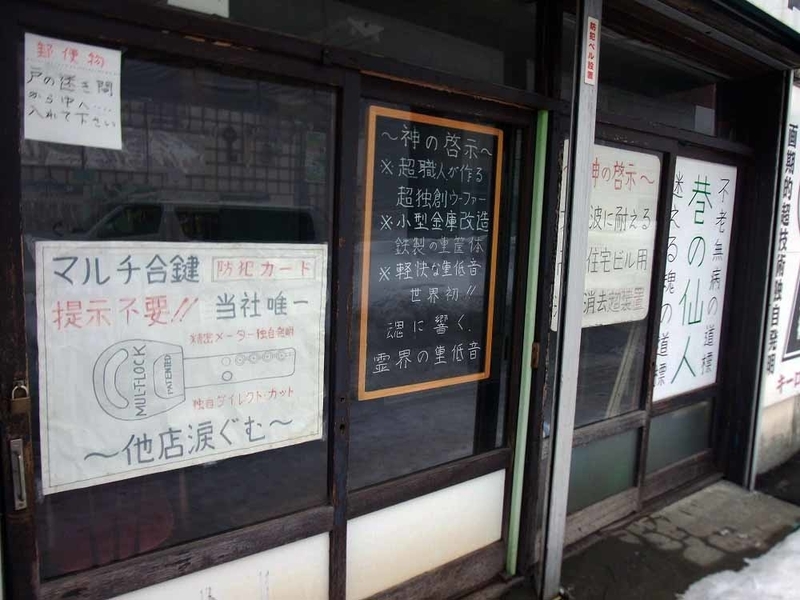 郵便物
戸の透き間
から中へ
入れて下さい
マルチ合鍵 防犯カード
提示不要!! 当社唯一
精密メーター独自発明
MUL-T-LOCK
PATENTED
独自ダイレクト・カット
〜他店涙ぐむ〜
〜神の啓示〜
※超職人が作る
超独創ウーファー
※小型金庫改造
鉄製の重筐体
※軽快な重低音
世界初!!
魂に響く
霊界の重低音
防犯ベル設置
神の啓示〜
波に耐える
住宅ビル用
消去超装置
不老無病の道標
巷の仙人
迷える魂の道標
画期的超技術独自発明
キーロ